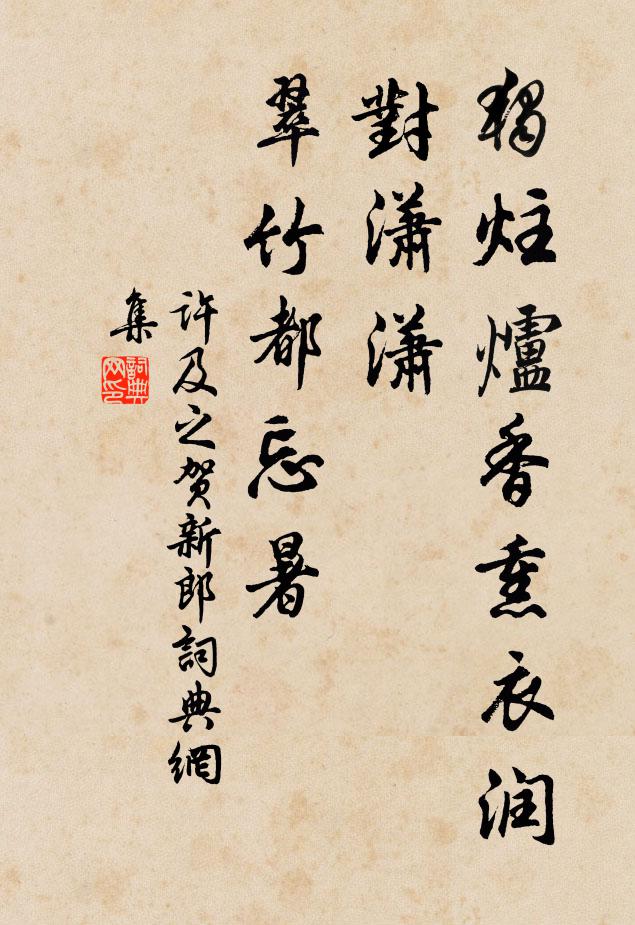 獨炷爐香熏衣润
對瀟瀟
翠竹都忘暑
许及之贺新郎詞典網
集
詞典
网印